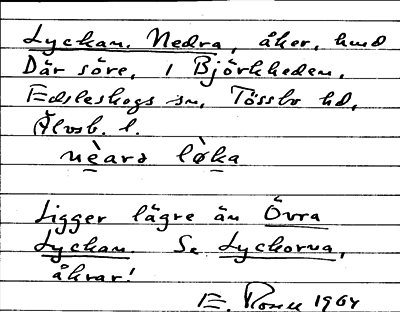 Lyckan, Nedra, åker, hmd
Där söre, i Björkheden,
Edsleskogs sn, Tössbo hd,
Älvsb. l.
nèara lø̀ka
Ligger lägre än Övra
Lyckan. Se Lyckorna,
åkrar!
E. 1964